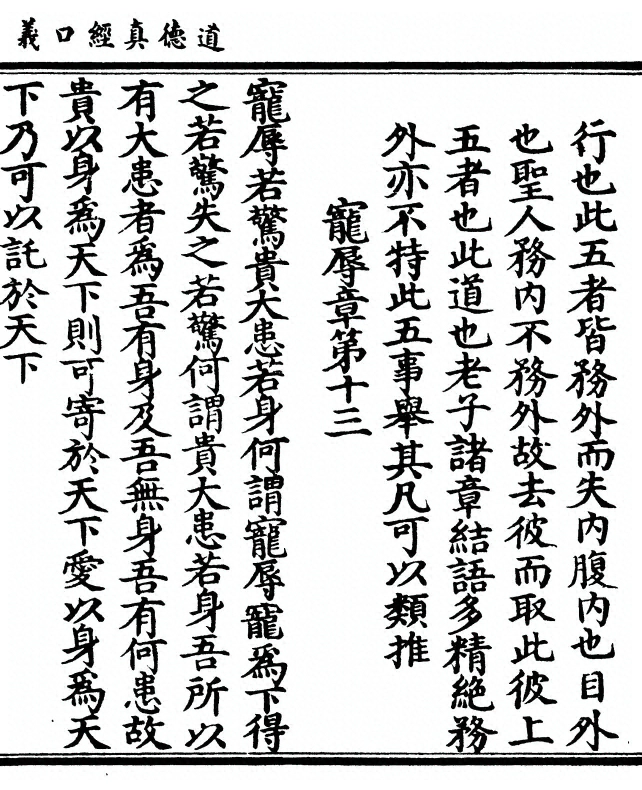 道德真經口義
行也此五者皆務外而失内腹内也目外
也聖人務内不務外故去彼而取此彼上
五者也此道也老子諸章結語多精絶務
外亦不特此五事舉其凡可以類推
寵辱章第十三
寵辱若驚貴大患若身何謂寵辱寵爲下得
之若驚失之若驚何謂貴大患若身吾所以
有大患者爲吾有身及吾無身吾有何患故
貴以身爲天下則可寄於天下愛以身爲天
下乃可以託於天下